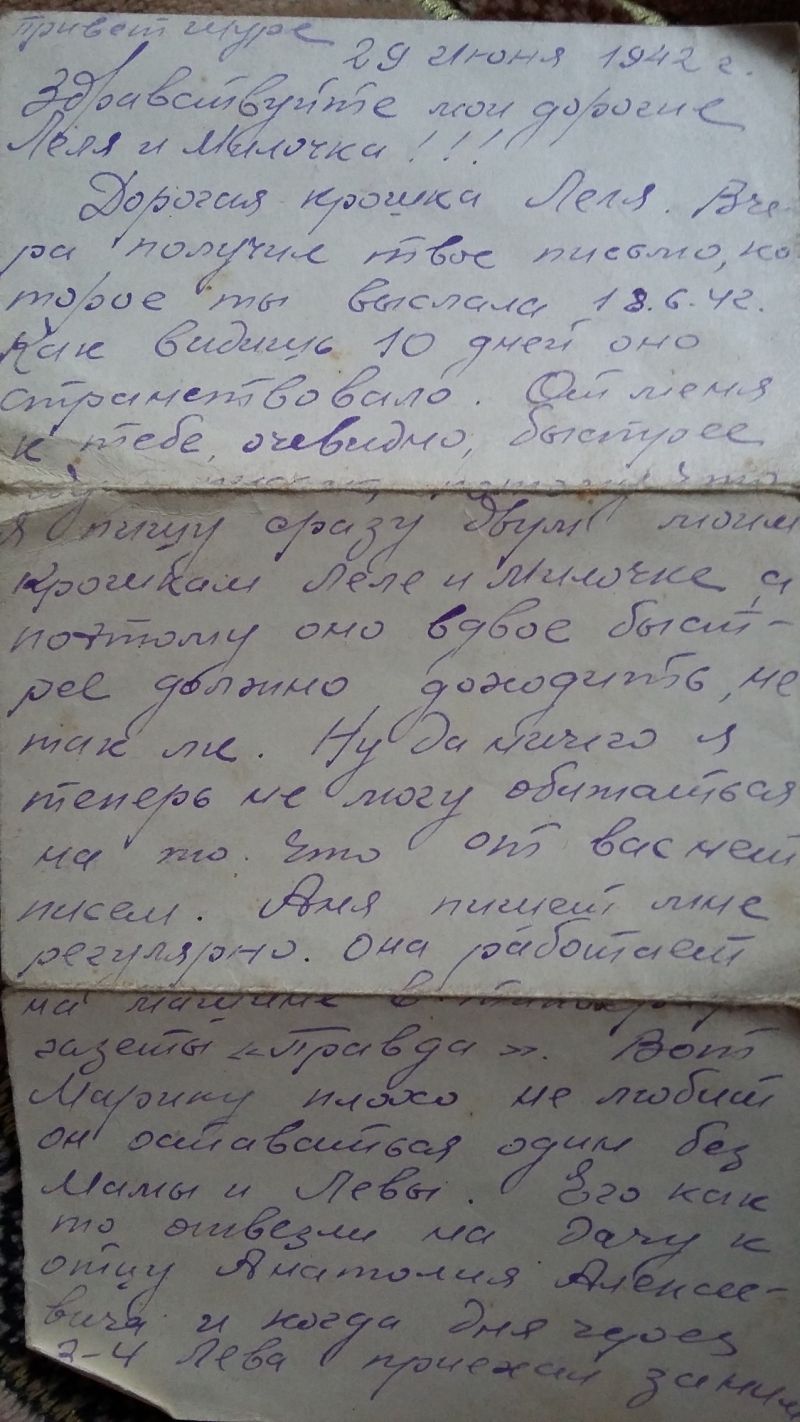 привет Шуре
29 Июня 1942 г.
Здравствуйте мои дорогие
Леля и Милочка!!!
Дорогая крошка Леля. Вче-
ра получил твое письмо, ко
торое ты выслала 18.6.42.
Как видишь 10 дней оно
странствовало. От меня
к тебе, очевидно, быстрее
потому что
я пишу сразу двум моим
крошкам Леле и Милочке, а
поэтому оно вдвое быст-
рее должно доходить, не
так ли. Ну да ничего я
теперь не могу обижаться
на то. что от вас нет
писем. Аня пишет мне
регулярно. Она работает
на машине в
газеты «Правда». Вот
Марику плохо не любит
он оставаться один без
Мамы и Левы. Его как
то отвезли на дачу к
отцу Анатолия Алексее-
вича и когда дня через
3-4 Лева приехал за ним